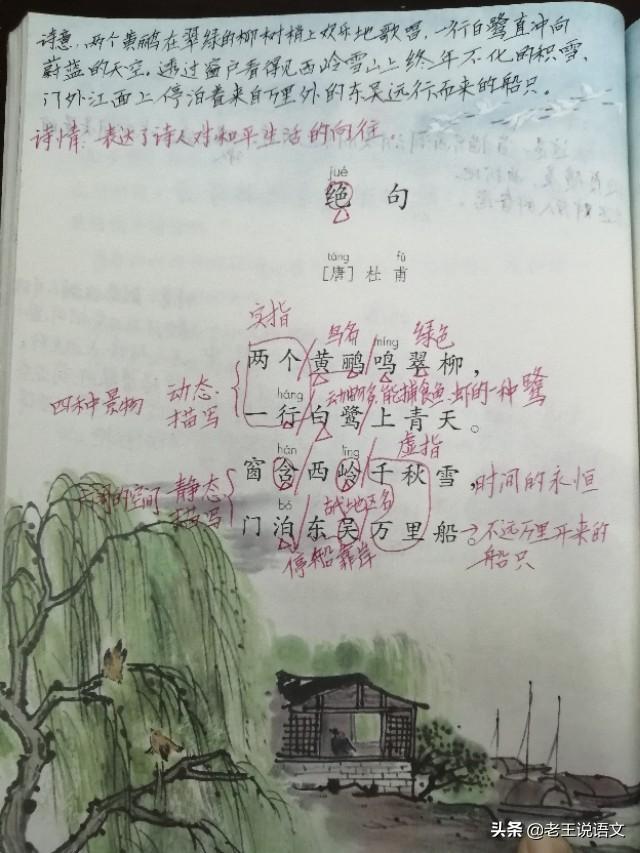 诗意：两个黄鹂在翠绿的柳树梢上欢乐地歌唱，一行白鹭直冲向
蔚蓝的天空。透过窗户看得见西岭雪山上终年不化的积雪，
门外江面上停泊着来自万里外的东吴远行而来的船只。
诗情：表达了诗人对和平生活的向往。
jué
绝句
táng fǔ
[唐] 杜甫
实指 鸟名 绿色
míng
两个黄鹂鸣翠柳，
四种景物 动态描写
háng
动物名，能捕食鱼、虾的一种鹭
一行白鹭上青天。
虚指
hán lǐng
窗含西岭千秋雪，
时间的永恒
的空间 静态描写
bó
古代地区名
门泊东吴万里船。
停船靠岸
不远万里开来的
船只
头条 @老王说语文